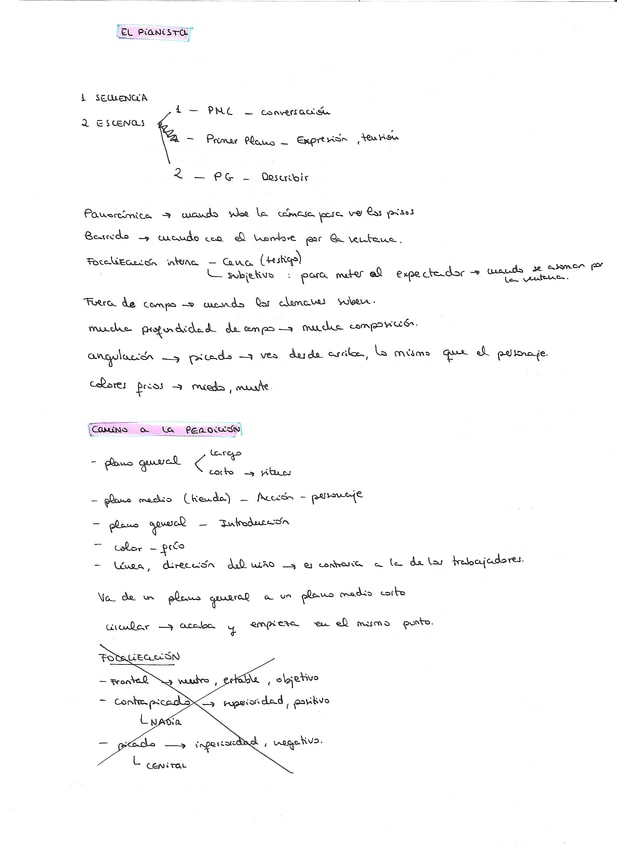 EL PIANISTA
1 SECUENCIA
1 - PMC - conversación
2 ESCENAS
- Primer Plano - Expresión, tensión
2 - PG - Describir
Panorámica → cuando sube la cámara para ver los pisos
Barrido → cuando cae el hombre por la ventana.
Focalización interna - Cena (testigo)
subjetivo : para meter al expectador → cuando se asoman por
la ventana.
Fuera de campo → cuando los alemanes suben.
mucha profundidad de campo → mucha composición.
angulación → picado → veo desde arriba, lo mismo que el personaje.
colores fríos → miedo, muerte.
CAMINO A LA PERDICIÓN
- plano general largo
corto → situar
- plano medio (tienda) - Acción - personaje
- plano general - Introducción
- color - frío
- Línea, dirección del niño → es contraria a la de los trabajadores.
Va de un plano general a un plano medio corto
circular → acaba y empieza en el mismo punto.
FOCALIZACIÓN
- Frontal → neutro, estable, objetivo
- contrapicado → superioridad, positivo
NADIR
- picado → inferioridad, negativo.
CENITAL